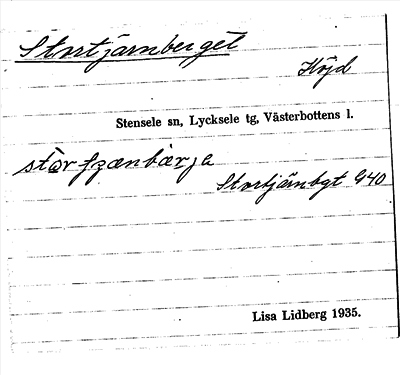 Stortjärnberget
Höjd
Stensele sn, Lycksele tg, Västerbottens l.
Stortjärnbgt G40
Lisa Lidberg 1935.